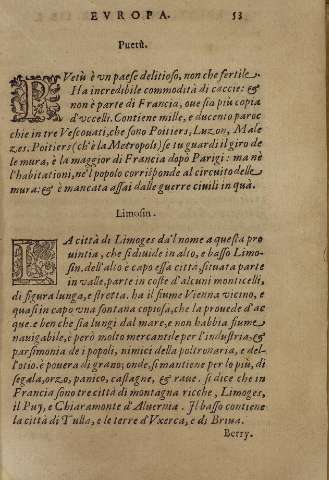 EVROPA. 53
Puetù.
PVetù è vn paese delitioso, non che fertile.
Ha incredibile commodità di caccie: &
non è parte di Francia, oue sia più copia
d'vccelli. Contiene mille, e ducento paroc
chie in tre Vescouati, che sono Poitiers, Luzon, Male
zes. Poitiers (ch'è la Metropoli) se tu guardi il giro de
le mura, è la maggior di Francia dopò Parigi: ma nè
l'habitationi, nè l popolo corrisponde al circuito delle
mura: & è mancata assai dalle guerre ciuili in quà.
Limosin.
LA città di Limoges dà'l nome a questa pro
uintia, che si diuide in alto, e basso Limo-
sin. dell'alto è capo essa città, situata parte
in valle, parte in coste d'alcuni monticelli,
di figura lunga, e stretta. ha il fiume Vienna vicino, e
quasi in capo vna fontana copiosa, che la prouede d'ac
que. e ben che sia lungi dal mare, e non habbia fiume
nauigabile, è però molto mercantile per l'industria, &
parsimonia de i popoli, nimici della poltronaria, e del-
l'otio. è pouera di grano; onde si mantiene per lo più, di
segala, orzo, panico, castagne, & raue. si dice che in
Francia sono tre città di montagna ricche, Limoges,
il Puy, e Chiaramonte d'Aluernia. Il basso contiene
la città di Tulla, e le terre d'Vxerca, e di Briua.
Berry.